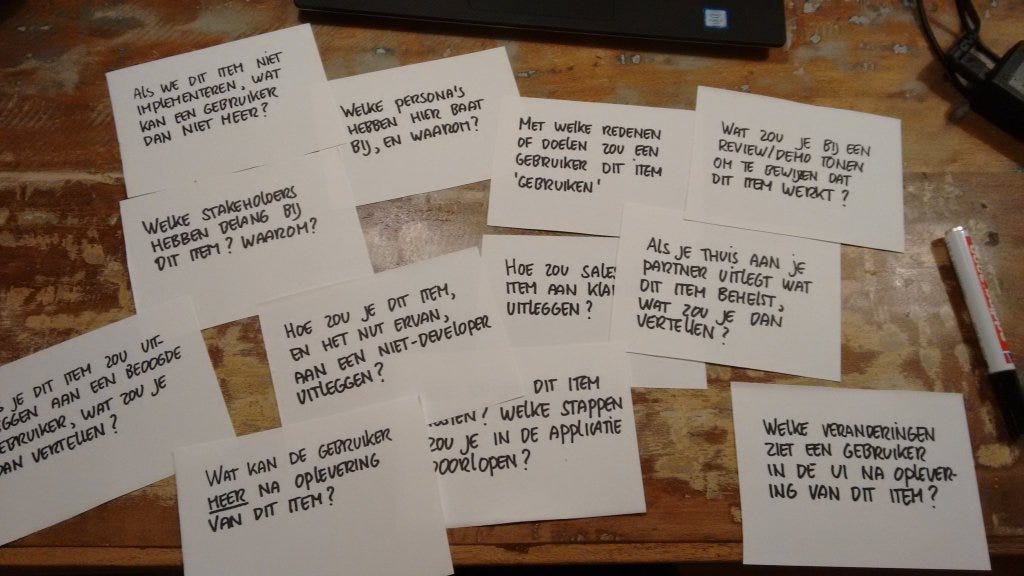 ALS WE DIT ITEM NIET
IMPLEMENTEREN, WAT
KAN EEN GEBRUIKER
DAN NIET MEER?
WELKE PERSONA'S
HEBBEN HIER BAAT
BIJ, EN WAAROM?
MET WELKE REDENEN
OF DOELEN ZOU EEN
GEBRUIKER DIT ITEM
'GEBRUIKEN'
WAT ZOU JE BIJ EEN
REVIEW/DEMO TONEN
OM TE BEWIJZEN DAT
DIT ITEM WERKT?
WELKE STAKEHOLDERS
HEBBEN BELANG BIJ
DIT ITEM? WAAROM?
HOE ZOU JE DIT ITEM,
EN HET NUT ERVAN,
AAN EEN NIET-DEVELOPER
UITLEGGEN?
HOE ZOU SALES
ITEM AAN KLA
UITLEGGEN?
ALS JE THUIS AAN JE
PARTNER UITLEGT WAT
DIT ITEM BEHELST,
WAT ZOU JE DAN
VERTELLEN?
JE DIT ITEM ZOU UIT-
GGEN AAN EEN BEOOGDE
EBRUIKER, WAT ZOU JE
DAN VERTELLEN?
WAT KAN DE GEBRUIKER
MEER NA OPLEVERING
VAN DIT ITEM?
DIT ITEM
WELKE STAPPEN
ZOU JE IN DE APPLICATIE
DOORLOPEN?
WELKE VERANDERINGEN
ZIET EEN GEBRUIKER
IN DE UI NA OPLEVER-
ING VAN DIT ITEM?